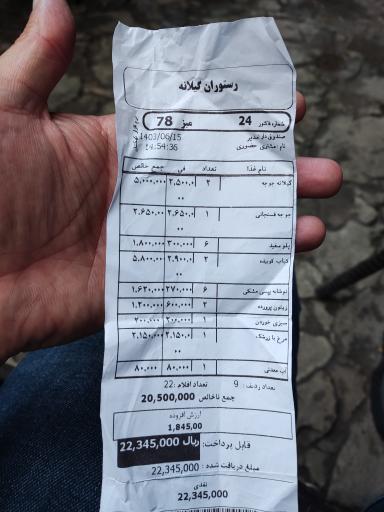 رستوران گیلانه
شماره فاکتور 24 میز 78
صندوق دار مدیر 1403/06/15
نام مشتری حضوری 14:54:36
نام غذا تعداد فی جمع خالص
گیلانه جوجه ۲ ۲,۵۰۰,۰۰۰ ۵,۰۰۰,۰۰۰
جوجه فسنجانی ۱ ۲,۶۵۰,۰۰۰ ۲,۶۵۰,۰۰۰
پلو سفید ۶ ۳۰۰,۰۰۰ ۱,۸۰۰,۰۰۰
کباب کوبیده ۲ ۲,۹۰۰,۰۰۰ ۵,۸۰۰,۰۰۰
نوشابه پپسی مشکی ۶ ۲۷۰,۰۰۰ ۱,۶۲۰,۰۰۰
زیتون پرورده ۲ ۶۰۰,۰۰۰ ۱,۲۰۰,۰۰۰
سبزی خوردن ۱ ۲۰۰,۰۰۰ ۲۰۰,۰۰۰
مرغ با زرشک ۱ ۲,۱۵۰,۰۰۰ ۲,۱۵۰,۰۰۰
آب معدنی ۱ ۸۰,۰۰۰ ۸۰,۰۰۰
تعداد ردیف : 9 تعداد اقلام :22
جمع ناخالص 20,500,000
ارزش افزوده
1,845,00
قابل پرداخت: 22,345,000 ریال
مبلغ دریافت شده : 22,345,000
نقدی
22,345,000